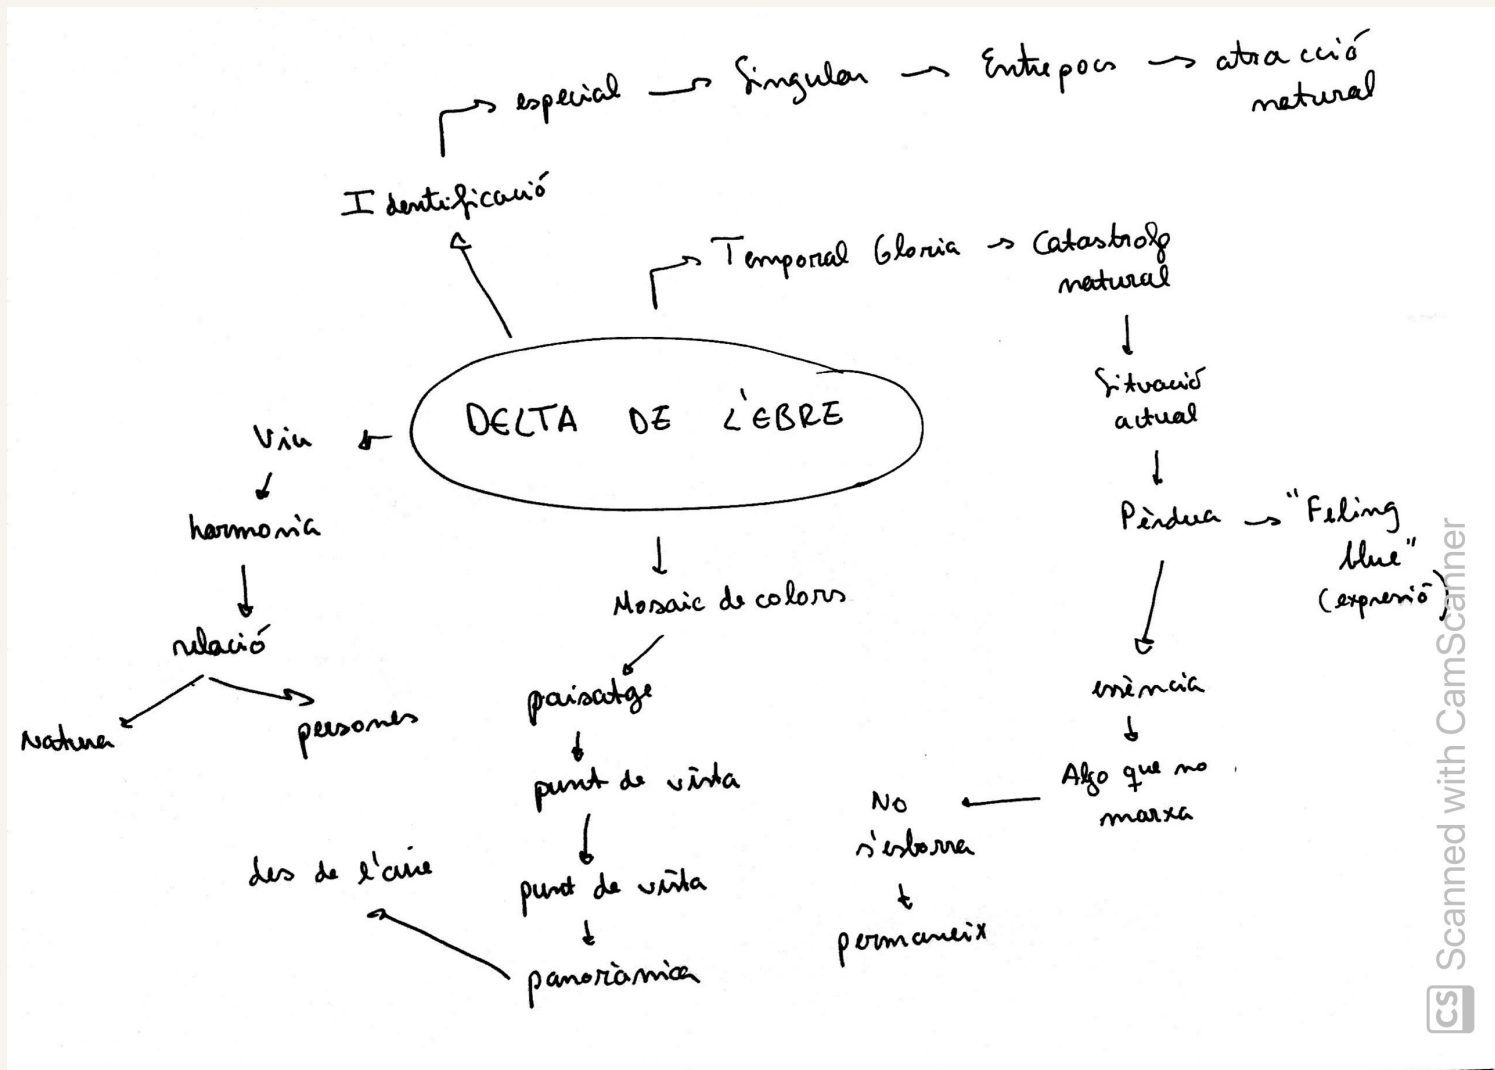 especial → Singular → Entrepocs → atracció
natural
Identificació
Temporal Gloria → Catastrofe
natural
Situació
actual
Pèrdua → "Feling
blue"
(expressió)
essència
Algo que no
marxa
No
s'esborra
permaneix
DELTA DE L'EBRE
Viu
harmonia
relació
Natura
persones
Mosaic de colors
paisatge
punt de vista
punt de vista
panoràmica
des de l'aire
CS Scanned with CamScanner